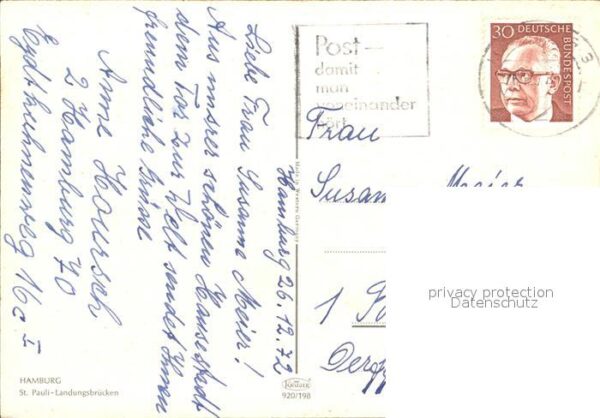 Hamburg 26.12.72
Liebe Frau Susanne Meier!
Aus unsrer schönen Hansestadt
dem Tor zur Welt sendet Ihnen
freundliche Grüsse
Anne Hoursch
2 Hamburg 70
Eydtkuhnenweg 16c I
HAMBURG
St. Pauli-Landungsbrücken
Post-
damit
man
voneinander
hört
30 DEUTSCHE
BUNDESPOST
Frau
Susa Meier
1
Krüger
920/198
privacy protection
Datenschutz